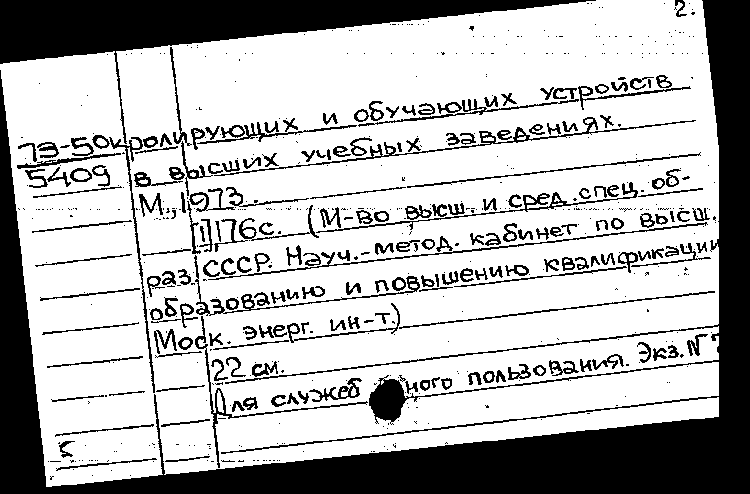 2.
73-50к ролирующих и обучающих устройств
5409 в высших учебных заведениях.
М., 1973.
[1], 176с. (М-во высш. и сред. спец. об-
раз. СССР. Науч.-метод. кабинет по высш.
образованию и повышению квалификации
Моск. энерг. ин-т.)
22 см.
Для служебного пользования. Экз. N